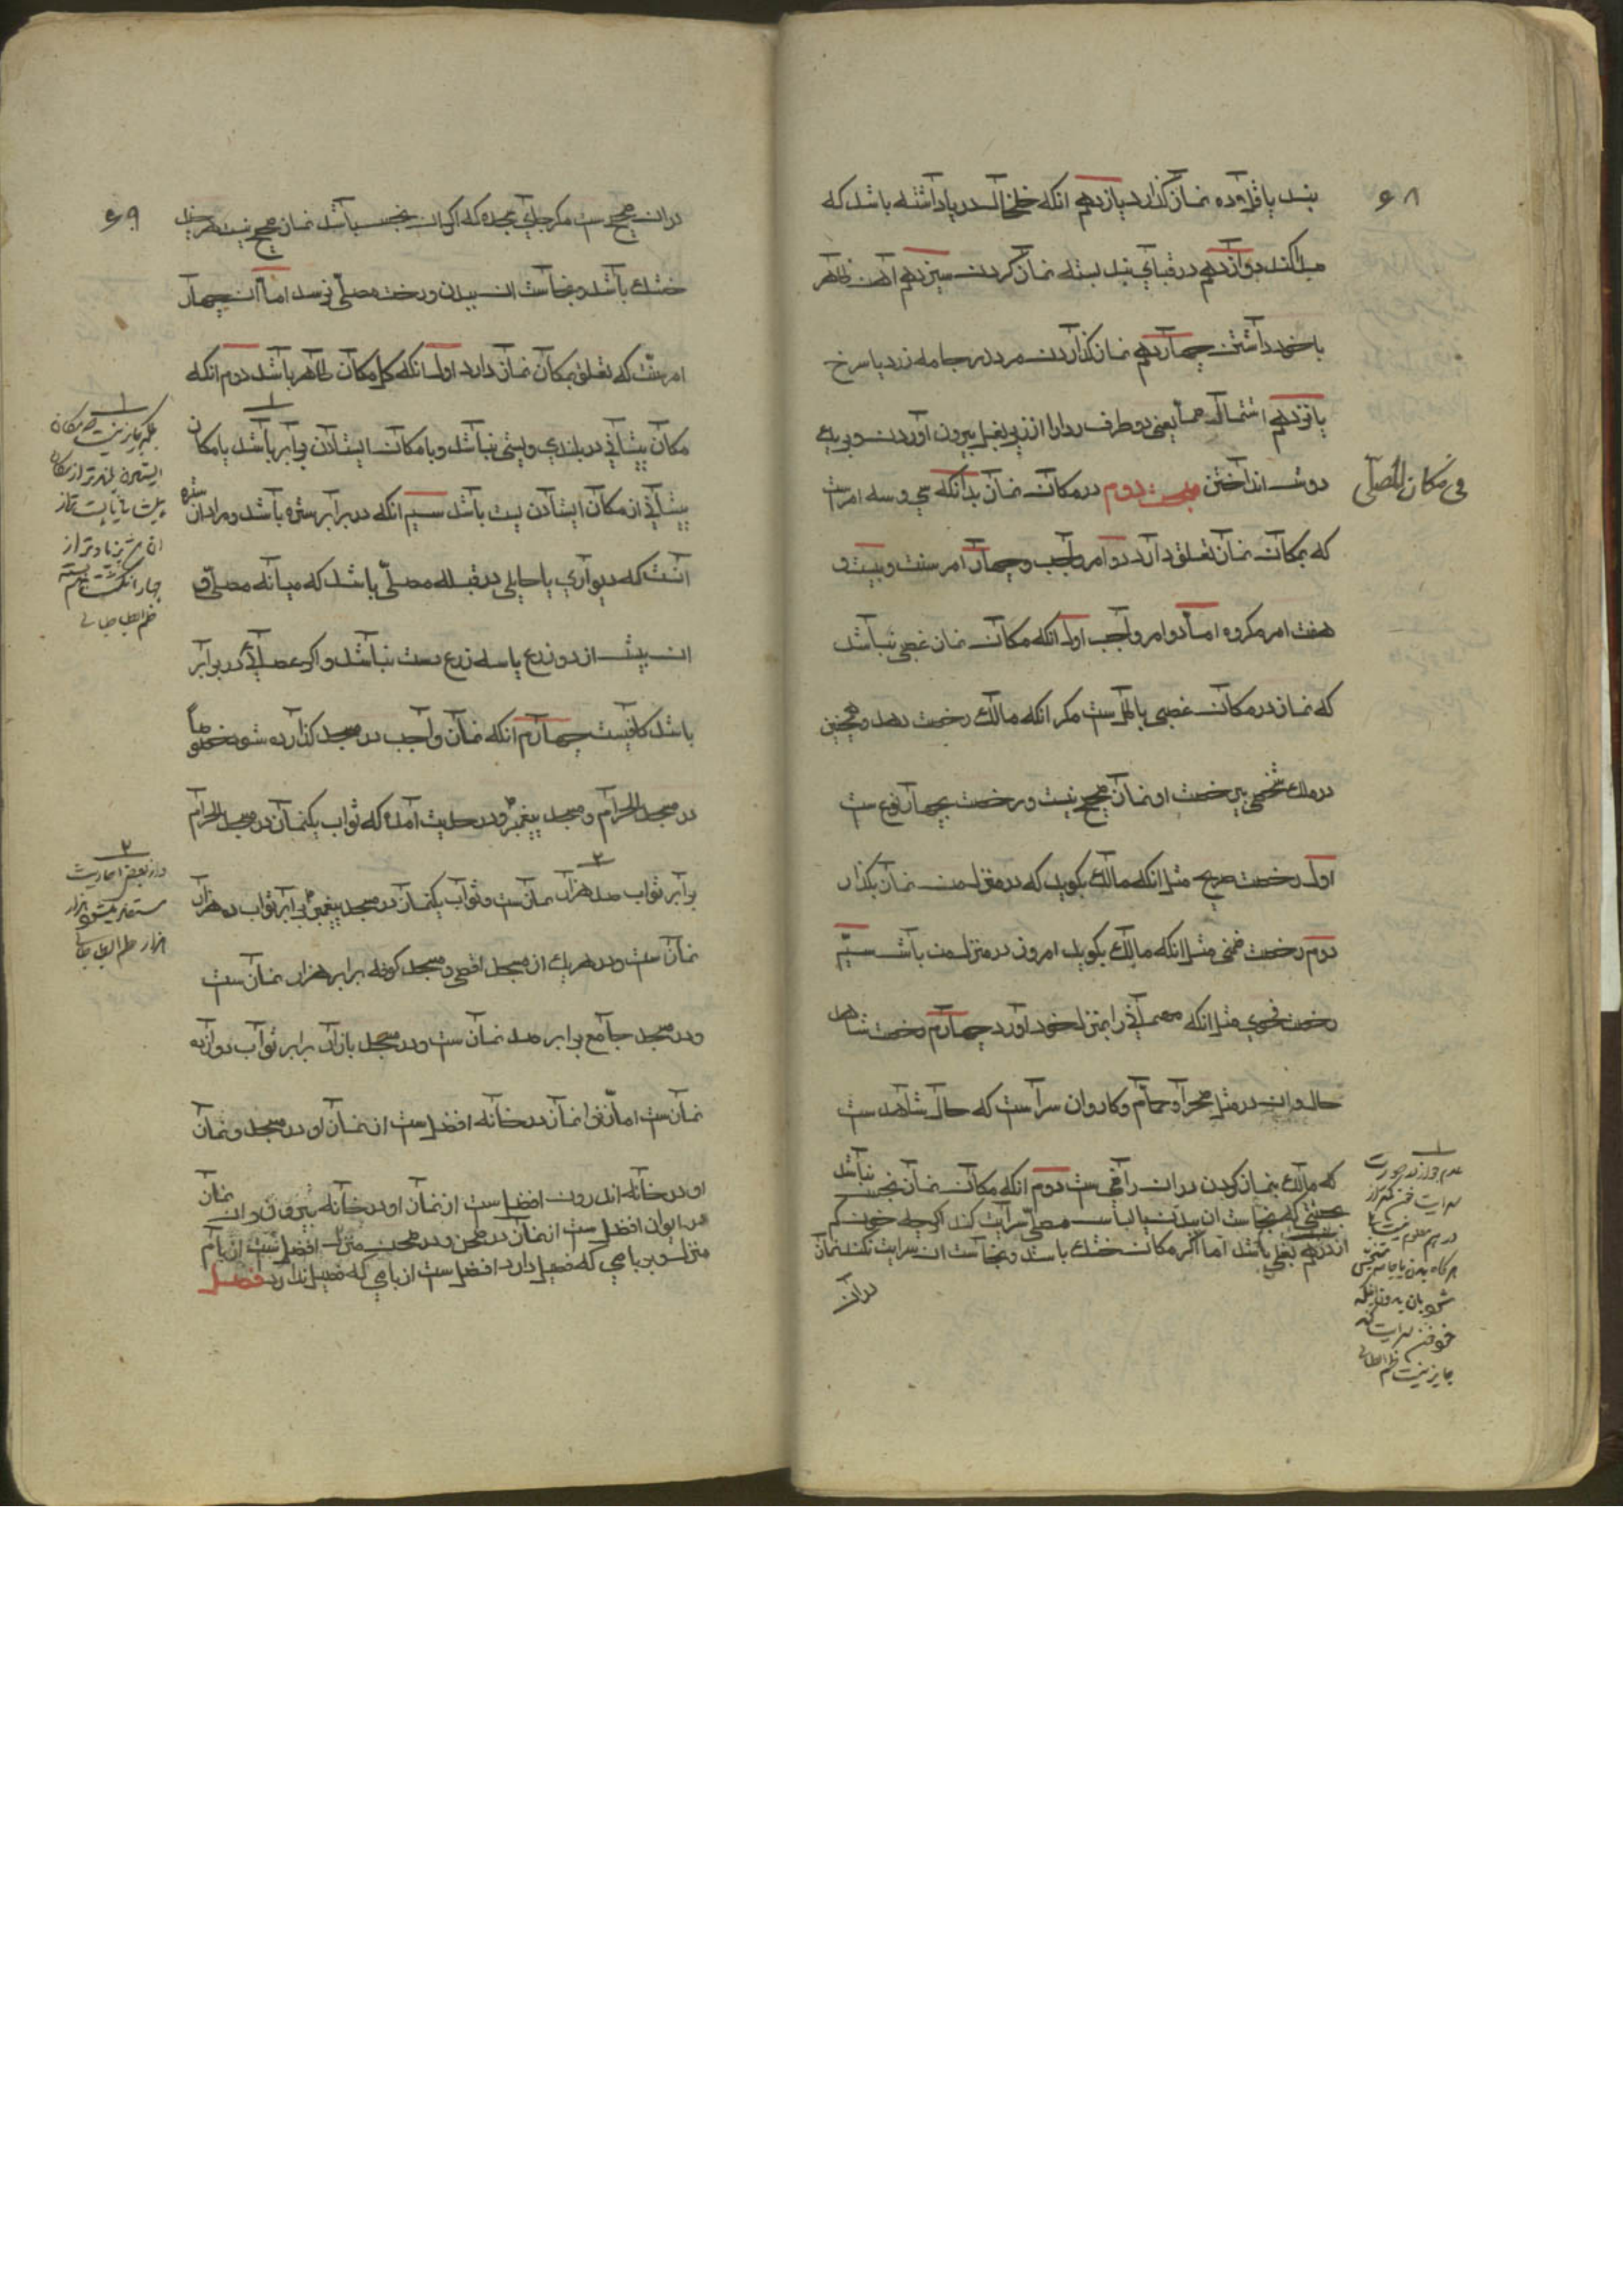 ۶۸
بند یا قلاده نماز گذارد یازدهم انکه خلخال در پا داشته باشد که
صدا کند دوازدهم در قبای بند بسته نماز کردن سیزدهم اهن ظاهر
با خود داشتن چهاردهم نماز گذاردن مرد در جامه زرد یا سرخ
پانزدهم اشتمال صما یعنی دو طرف ردا را از زیر بغل بیرون اوردن و بر یک
دوش انداختن مطلب دوم در مکان نماز بدانکه سی و سه امرست
فی مکان المصلی
که بمکان نماز تعلق دارد دو امر واجب و چهار امر سنت و بیست و
هفت امر مکروه اما دو امر واجب اول انکه مکان نماز غصبی نباشد
که نماز در مکان غصبی باطل ست مکر انکه مالک رخصت دهد و همچنین
در ملک شخصی بی رخصت او نماز صحیح نیست و رخصت بچهار نوع ست
اول رخصت صریح مثل انکه مالک بکوید که در منزل من نماز بکذار
دوم رخصت ضمنی مثل انکه مالک بکوید امروز در منزل من باش سیم
رخصت فحوی مثل انکه مهمانی را بمنزل خود اورد چهارم رخصت شاهد
حال و ان در مثل صحرا و حمام و کاروان سراست که حال شاهد ست
که مالک بنماز کردن در ان راضی ست دوم انکه مکان نماز نجس نباشد
بنجاستی که نجاست ان ببدن یا لباس مصلی سرایت کند اکر چه خون کم
از درهم بغلی باشد اما اکر مکان خشک باشد و نجاست ان سرایت نکند نماز
در ان
۱
درهم معلوم نیست
هر کاه بدن یا جامه
جایز نیست
۶۹
در ان صحیح ست مکر جای سجده که اکر ان نجس باشد نماز صحیح نیست هر چند
خشک باشد و نجاست ان ببدن و رخت مصلی نرسد اما ان چهار
امر سنت که تعلق بمکان نماز دارد اول انکه کل مکان طاهر باشد دوم انکه
مکان پیشانی در بلندی و پستی نباشد و با مکان ایستادن برابر باشد یا مکان
پیشانی از مکان ایستادن پست باشد سیم انکه در برابر ستره باشد و مراد از ان ستره
انست که دیواری یا حایلی در قبله مصلی باشد که میانه مصلی و
ان بیش از دو زرع یا سه زرع دست نباشد و اکر عصایی در برابر
باشد کافیست چهارم انکه نماز واجب در مسجد کذارده شود خصوصا
در مسجد الحرام و مسجد پیغمبر و در حدیث آمده که ثواب یکنماز در مسجد الحرام
برابر ثواب صد هزار نماز ست و ثواب یکنماز در مسجد پیغمبر برابر ثواب ده هزار
نماز ست و در هر یک از مسجد اقصی و مسجد کوفه برابر هزار نماز ست
و در مسجد جامع برابر صد نماز ست و در مسجد بازار برابر ثواب دوازده
نماز ست اما زن را نماز در خانه افضل ست از نماز او در مسجد و نماز
او در خانه اندرون افضل ست از نماز او در خانه بیرون و نماز
در ایوان افضل ست از نماز در صحن و در صحن منزل افضل ست از بام
منزل و بر بامی که فصیل دارد افضل ست از بامی که فصیل ندارد فصل
۱
بلکه جایز نیست که مکان
ایستادن بلندتر از مکان
زیادتر از
چهار انگشت بسته
۲
و از بعض احادیث